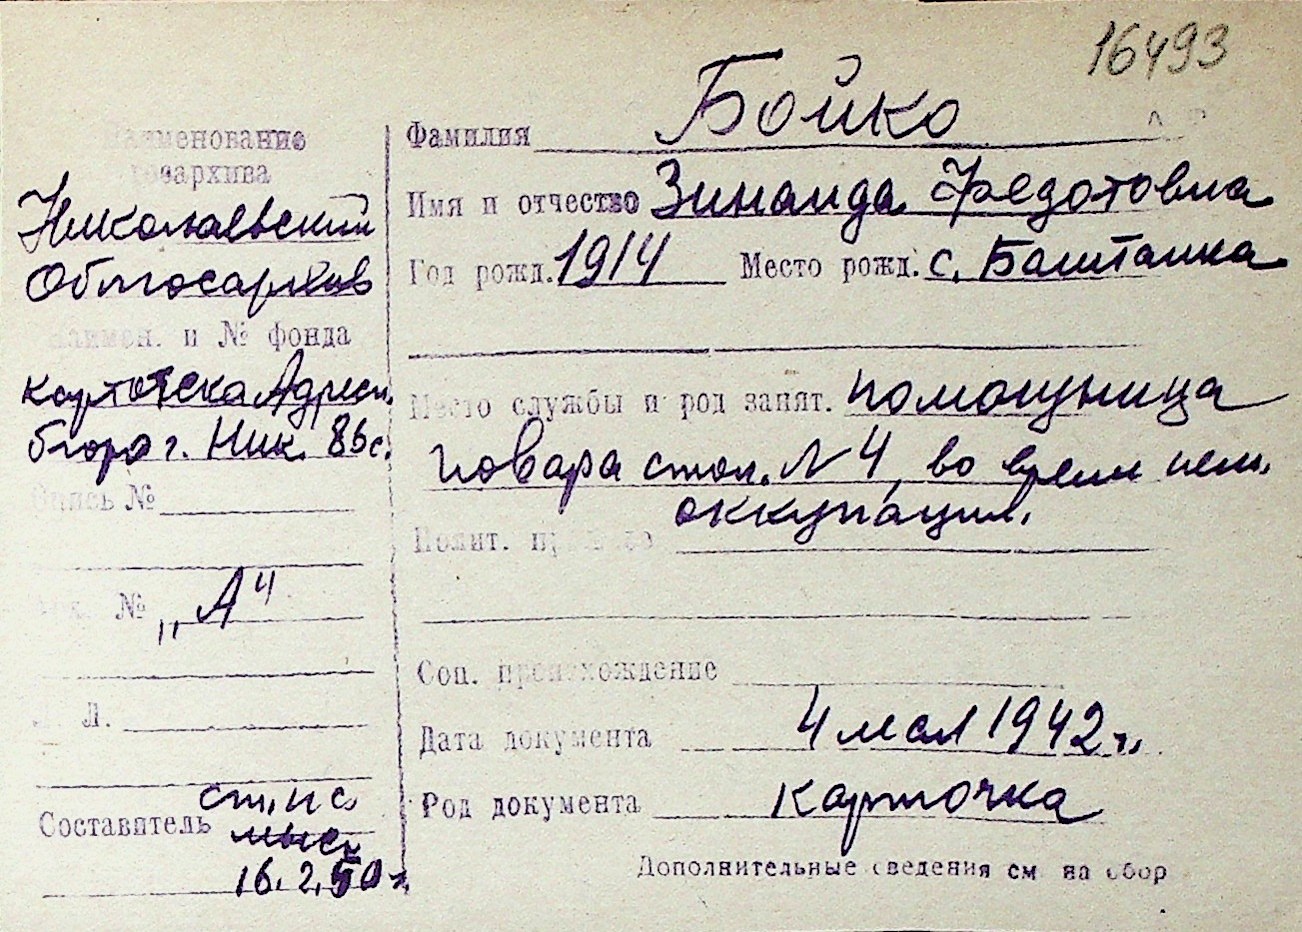 16493
Наименование
госархива
Николаевский
Облгосархив
Наимен. и № фонда
картотека Адресн.
бюро г. Ник. 86с.
Опись №
№ „А"
Л.
Составитель ст. н с
16.2.50 г.
Фамилия Бойко
Имя и отчество Зинаида Федотовна
Год рожд. 1914 Место рожд. с. Баштанка
Место службы и род занят. помощница
повара стол. N 4, во время нем.
оккупации.
Полит.
Соц. происхождение
Дата документа 4 мая 1942 г.
Род документа карточка
Дополнительные сведения см на обор